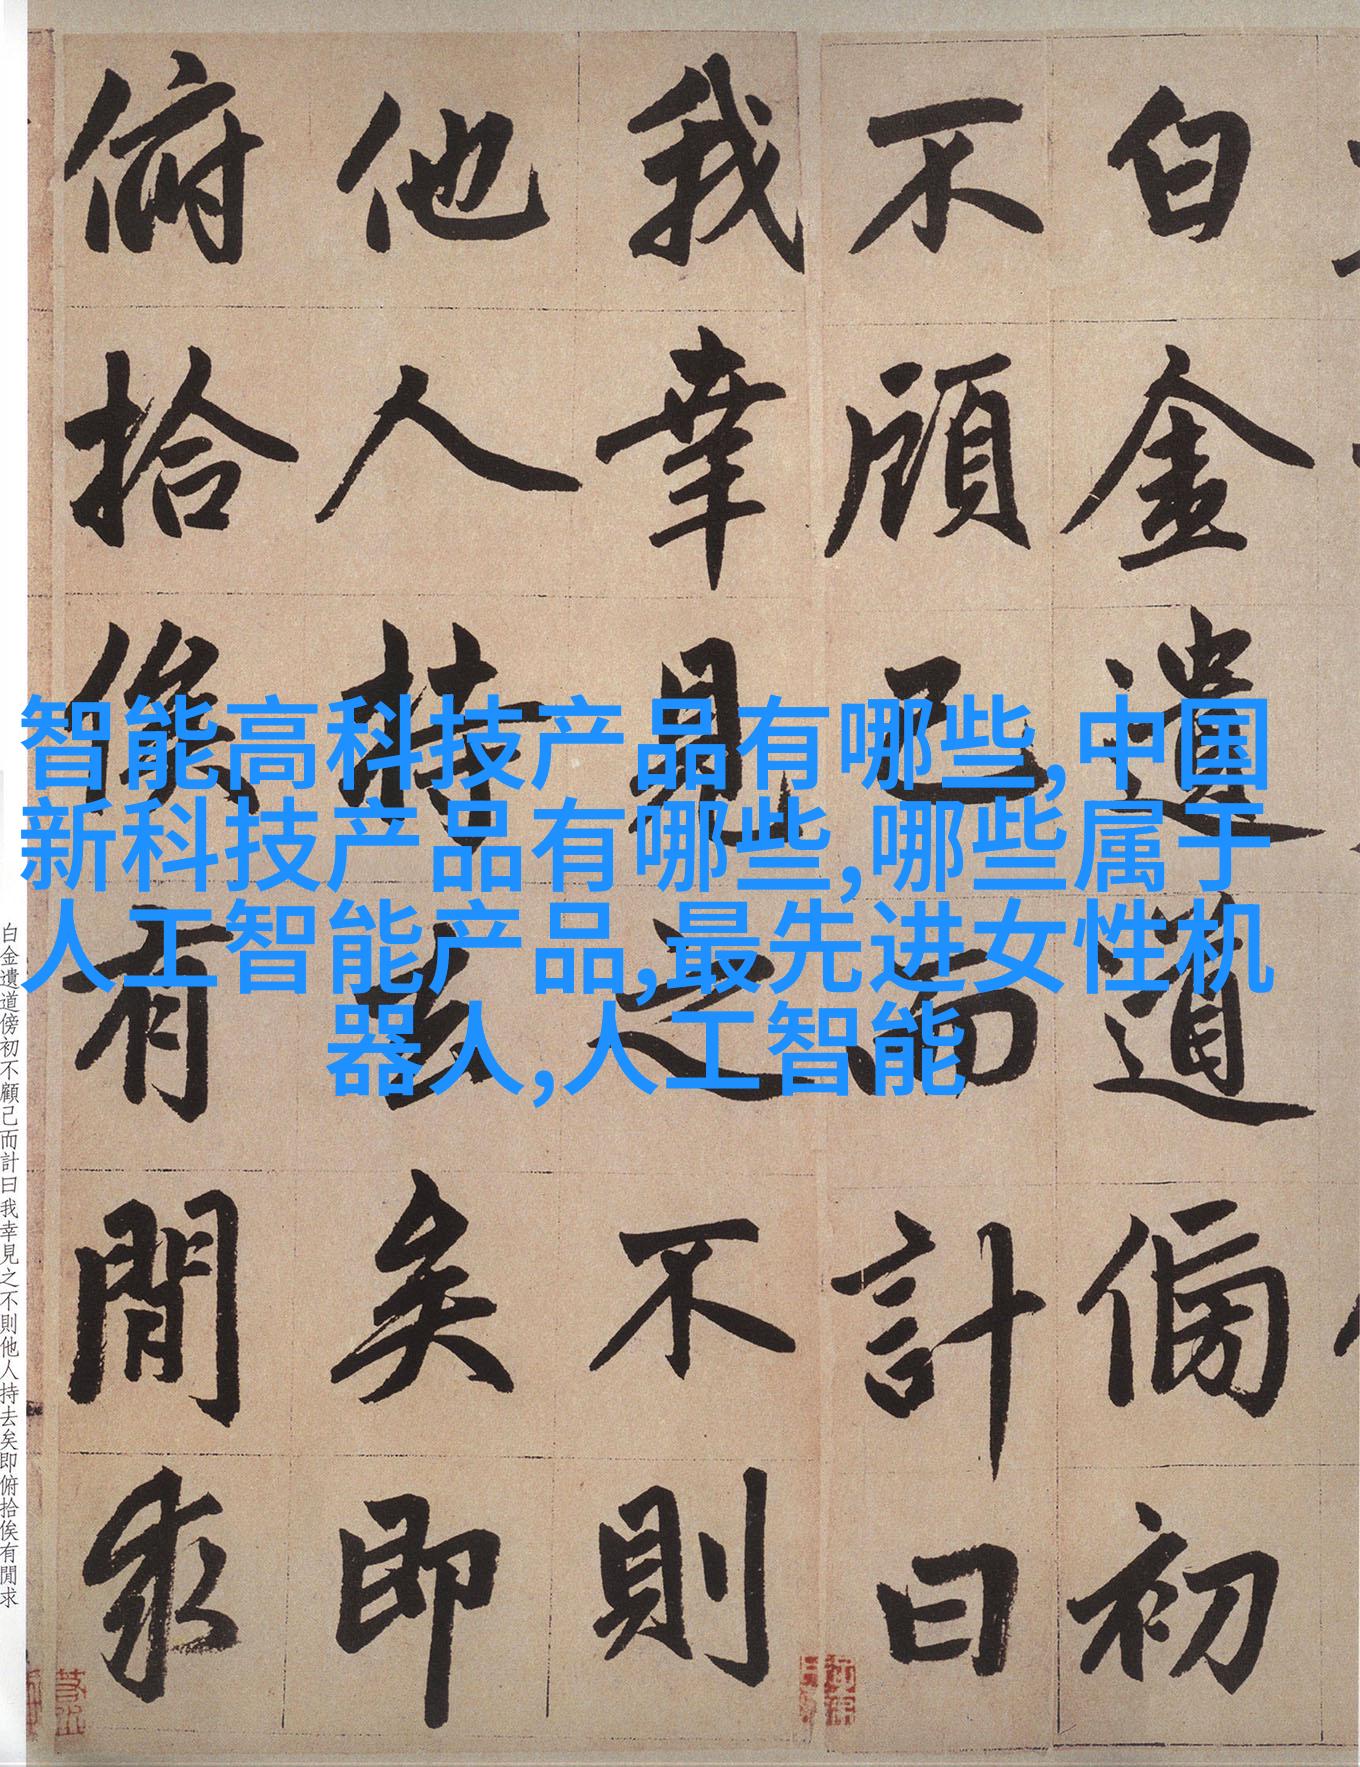 白金遺道傍初
不顧己而計曰
我幸見之不則
他人持去矣即
俯拾俟有閒求
智能高科技产品有哪些,中国
新科技产品有哪些,哪些属于
人工智能产品,最先进女性机
器人,人工智能
白金遺道傍初不顧己而計曰我幸見之不則他人持去矣即俯拾俟有閒求